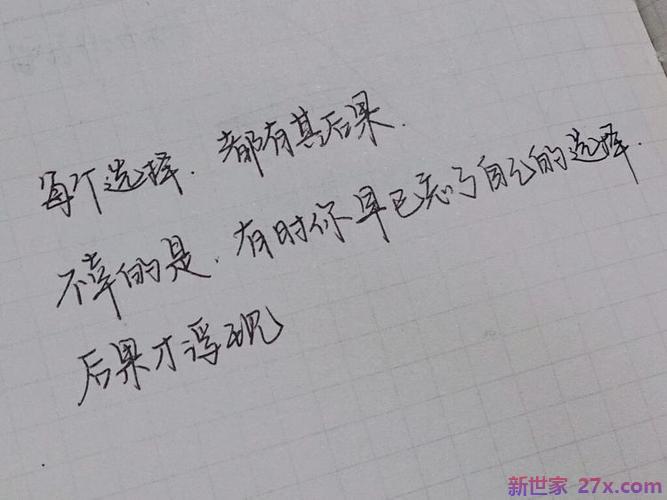 每个选择.都有其后果.
不幸的是.有时你早已忘了自己的选择.
后果才浮现
新世家 27x.com